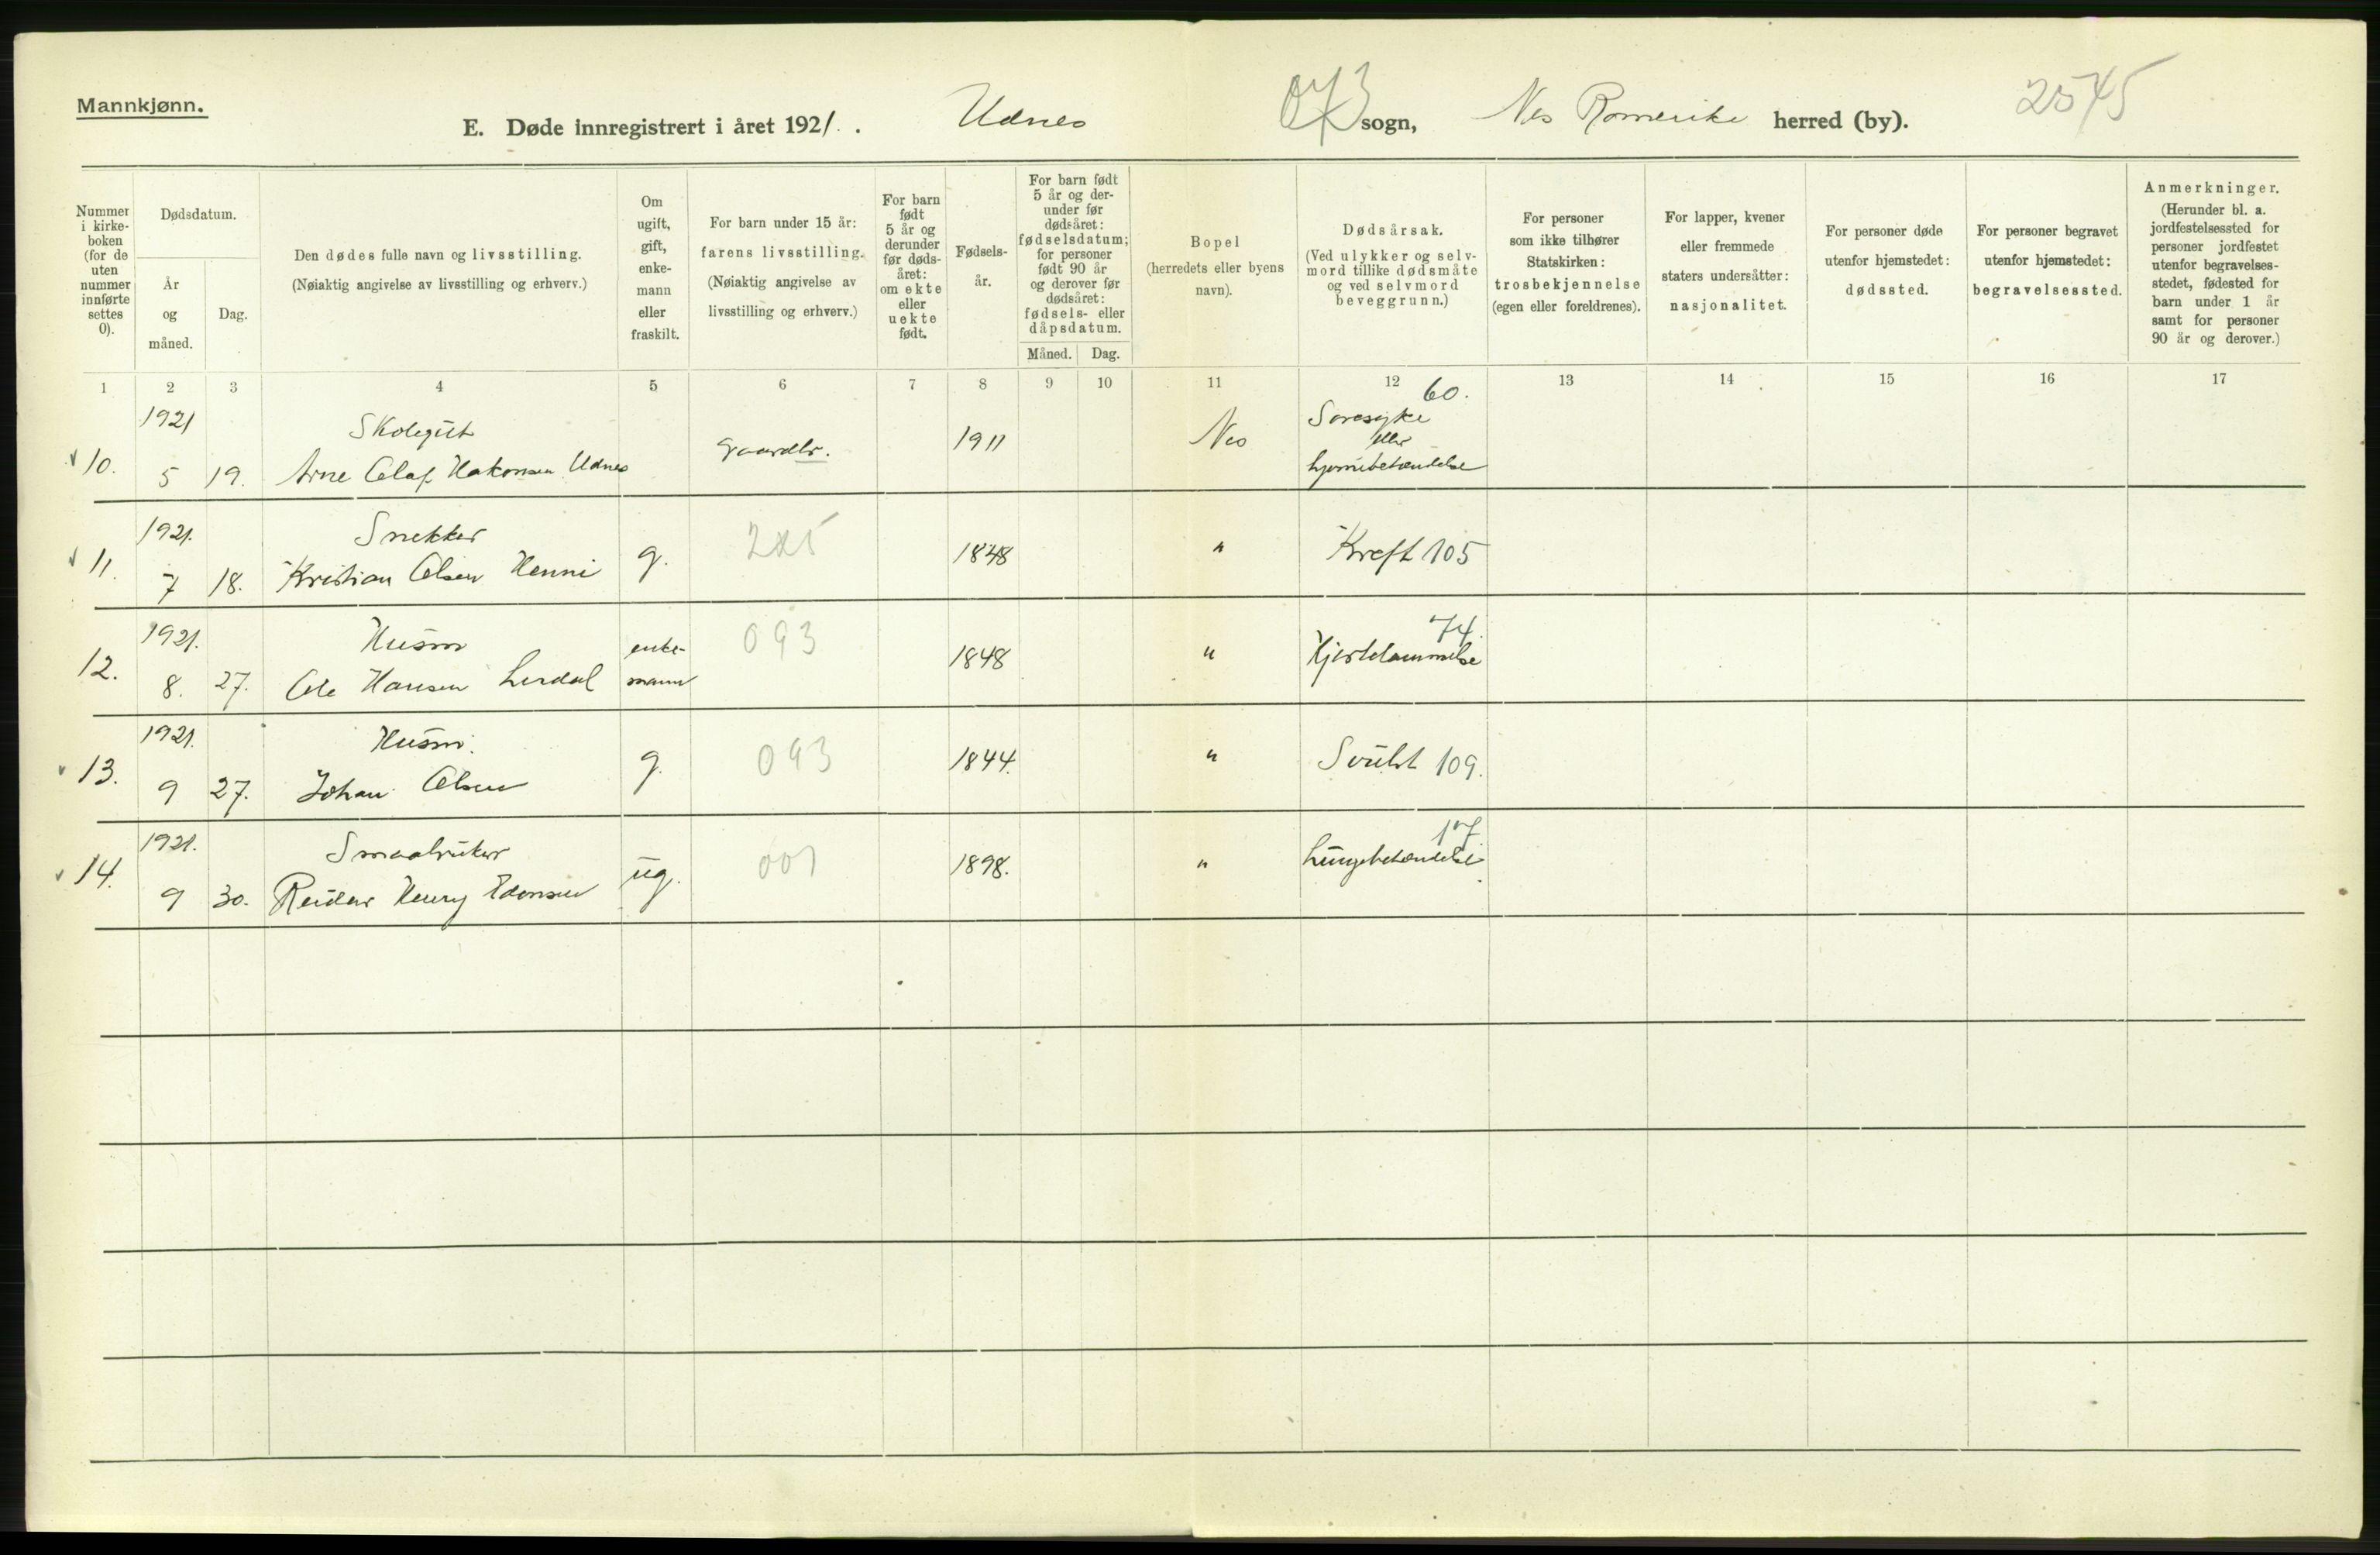 Mannkjønn.
E. Døde innregistrert i året 1921. Udnes 073 sogn, Nes Romerike herred (by). 2545
Nummer i kirke-boken (for de uten nummer innførte settes 0).
Dødsdatum.
År og måned.
Dag.
Den dødes fulle navn og livsstilling.
(Nøiaktig angivelse av livsstilling og erhverv.)
Om ugift, gift, enke-mann eller fraskilt.
For barn under 15 år:
farens livsstilling.
(Nøiaktig angivelse av livsstilling og erhverv.)
For barn født 5 år og derunder før døds-året: om ekte eller uekte født.
Fødsels-år.
For barn født 5 år og der-under før dødsåret: fødselsdatum; for personer født 90 år og derover før dødsåret: fødsels- eller dåpsdatum.
Måned. Dag.
Bopel
(herredets eller byens navn).
Dødsårsak.
(Ved ulykker og selv-mord tillike dødsmåte og ved selvmord beveggrunn.)
For personer som ikke tilhører Statskirken:
trosbekjennelse
(egen eller foreldrenes).
For lapper, kvener eller fremmede staters undersåtter:
nasjonalitet.
For personer døde utenfor hjemstedet:
dødssted.
For personer begravet utenfor hjemstedet:
begravelsessted.
Anmerkninger.
(Herunder bl. a. jordfestelsessted for personer jordfestet utenfor begravelses-stedet, fødested for barn under 1 år samt for personer 90 år og derover.)
1 2 3 4 5 6 7 8 9 10 11 12 13 14 15 16 17
60.
1921 Skolegut Sovesyke
10. 5 19. Arne Olaf Hakonsen Udnes gaardbr. 1911 Nes eller
hjernebetændelse
1921. Snekker
11. 7 18. Kristian Olsen Henni g. 1848 " Kreft 105
1921. Husm enke- 093 74.
12. 8. 27. Ole Hansen Lerdal mann 1848 " Hjertelammelse
1921. Husm.
13. 9 27. Johan Olsen g. 093 1844. " Svulst 109.
1921. Smaabruker 17
14. 9 30. Reidar Henry Edonsen ug. 001 1898. " Lungebetændelse.